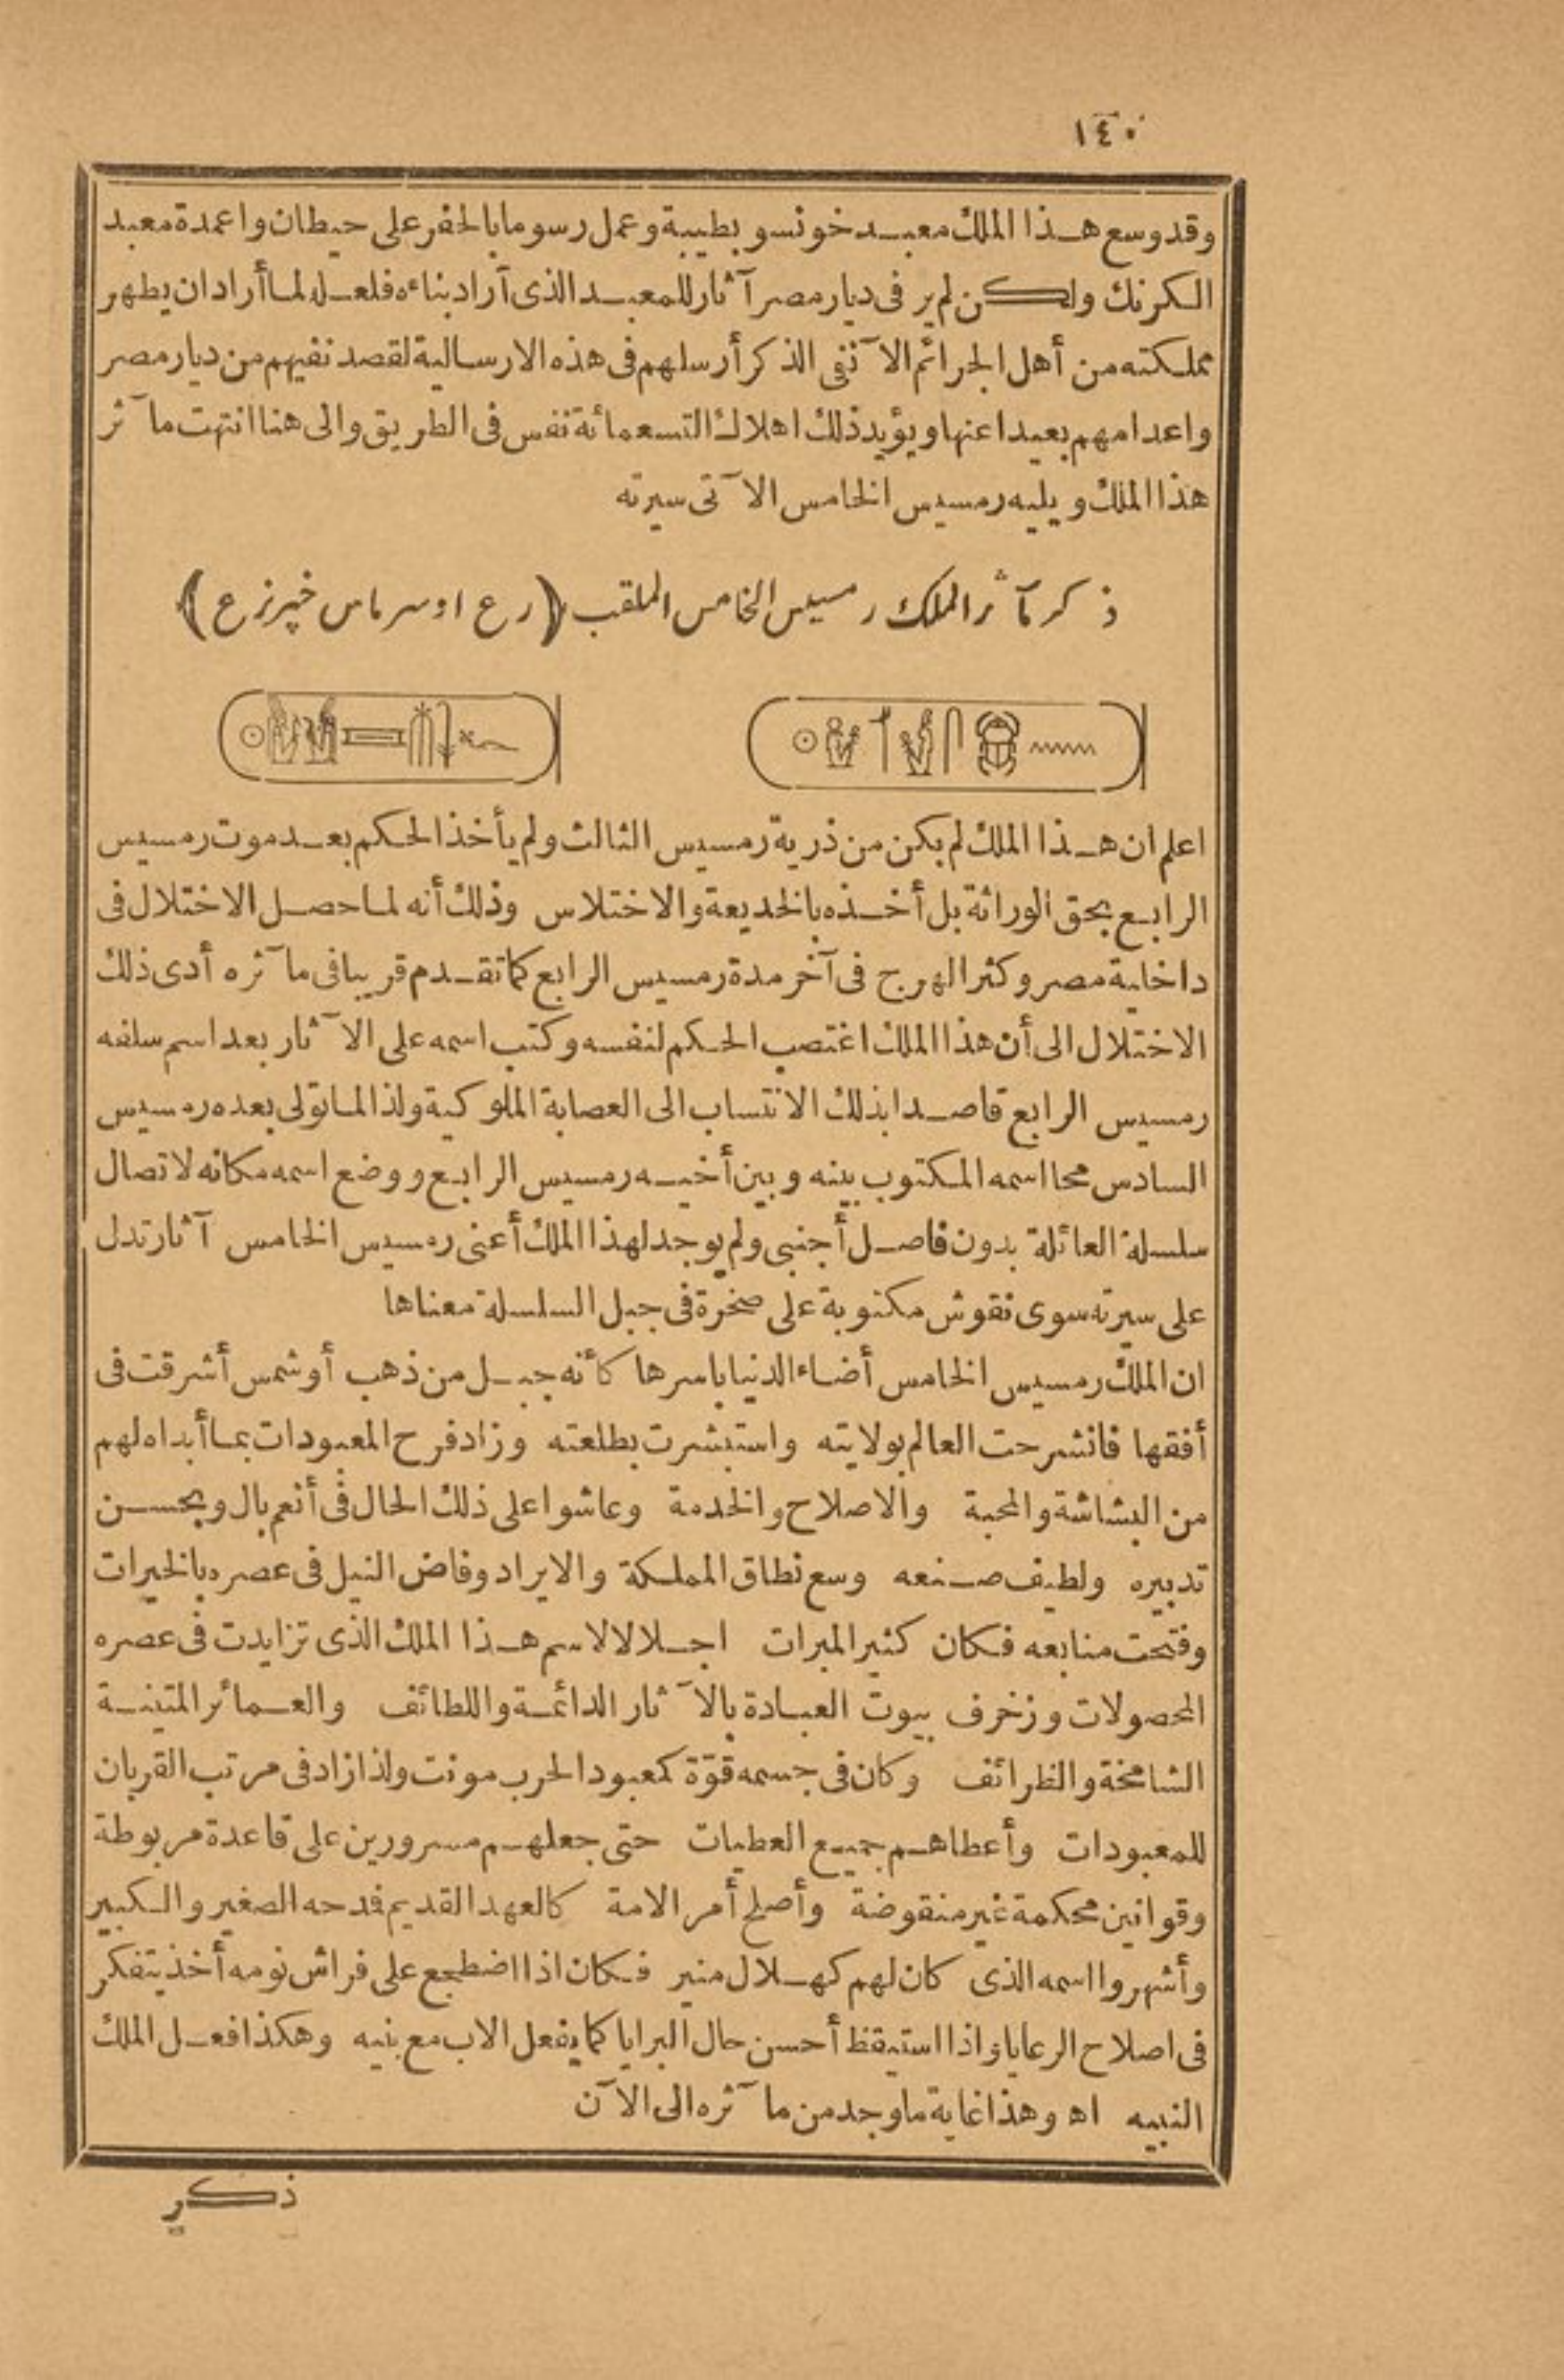 ١٤٠
وقد وسع هذا الملك معبد خونسو بطيبة وعمل رسوما بالحفر على حيطان واعمدة معبد
الكرنك ولكن لم ير فى ديار مصر آثار للمعبد الذى آراد بناءه فلعله لما أراد ان يطهر
مملكته من أهل الجرائم الآنفى الذكر أرسلهم فى هذه الارسالية لقصد نفيهم من ديار مصر
واعدامهم بعيدا عنها ويؤيد ذلك اهلاك التسعمائة نفس فى الطريق والى هنا انتهت مآثر
هذا الملك ويليه رمسيس الخامس الآتى سيرته
ذكر مآثر الملك رمسيس الخامس الملقب (رع اوسرماس خپرنرع)
اعلم ان هذا الملك لم يكن من ذرية رمسيس الثالث ولم يأخذ الحكم بعد موت رمسيس
الرابع بحق الوراثة بل أخذه بالخديعة والاختلاس وذلك أنه لما حصل الاختلال فى
داخلية مصر وكثر الهرج فى آخر مدة رمسيس الرابع كما تقدم قريبا فى مآثره أدى ذلك
الاختلال الى أن هذا الملك اغتصب الحكم لنفسه وكتب اسمه على الآثار بعد اسم سلفه
رمسيس الرابع قاصدا بذلك الانتساب الى العصابة الملوكية ولذا لما تولى بعده رمسيس
السادس محا اسمه المكتوب بينه وبين أخيه رمسيس الرابع ووضع اسمه مكانه لاتصال
سلسلة العائلة بدون فاصل أجنبى ولم يوجد لهذا الملك أعنى رمسيس الخامس آثار تدل
على سيرته سوى نقوش مكتوبة على صخرة فى جبل السلسلة معناها
ان الملك رمسيس الخامس أضاء الدنيا باسرها كأنه جبل من ذهب أو شمس أشرقت فى
أفقها فانشرحت العالم بولايته واستبشرت بطلعته وزاد فرح المعبودات بما أبداه لهم
من البشاشة والمحبة والاصلاح والخدمة وعاشوا على ذلك الحال فى أنعم بال وبحسن
تدبيره ولطيف صنعه وسع نطاق المملكة والايراد وفاض النيل فى عصره بالخيرات
وفتحت منابعه فكان كثير المبرات اجلالا لاسم هذا الملك الذى تزايدت فى عصره
المحصولات وزخرف بيوت العبادة بالآثار الدائمة واللطائف والعمائر المتينة
الشامخة والظرائف وكان فى جسمه قوّة كمعبود الحرب مونت ولذا زاد فى مرتب القربان
للمعبودات وأعطاهم جميع العطيات حتى جعلهم مسرورين على قاعدة مربوطة
وقوانين محكمة غير منقوضة وأصلح أمر الامة كالعهد القديم فدحه الصغير والكبير
وأشهروا اسمه الذى كان لهم كهلال منير فكان اذا اضطجع على فراش نومه أخذ يتفكر
فى اصلاح الرعايا واذا استيقظ أحسن حال البرايا كما يفعل الاب مع بنيه وهكذا فعل الملك
النبيه اه وهذا غاية ما وجد من مآثره الى الآن
ذكر